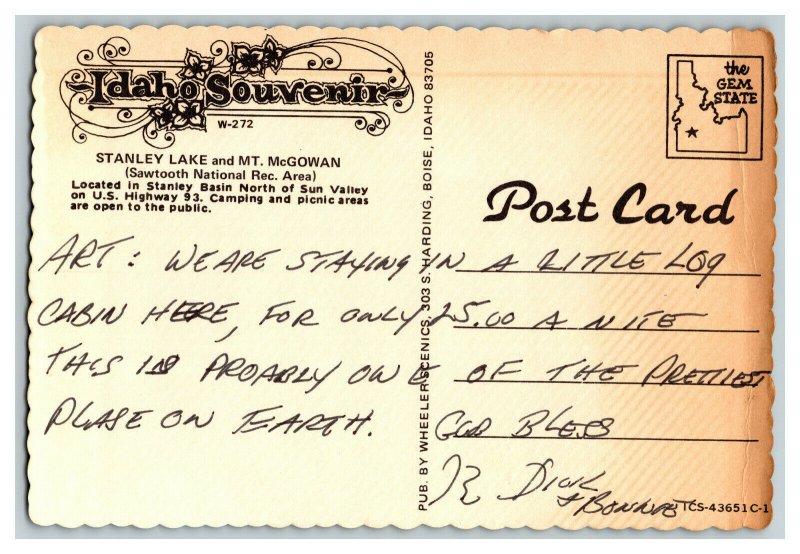 Idaho Souvenir
W-272
STANLEY LAKE and MT. McGOWAN
(Sawtooth National Rec. Area)
Located in Stanley Basin North of Sun Valley
on U.S. Highway 93. Camping and picnic areas
are open to the public.
PUB. BY WHEELER SCENICS, 303 S. HARDING, BOISE, IDAHO 83705
the
GEM
STATE
Post Card
ART: WE ARE STAYING IN A LITTLE LOG
CABIN HERE, FOR ONLY 25.00 A NITE
THIS IS PROABLY ONE OF THE PRETTIEST
PLASE ON EARTH. GOD BLESS
DICK
& BONNIE
TCS-43651C-1